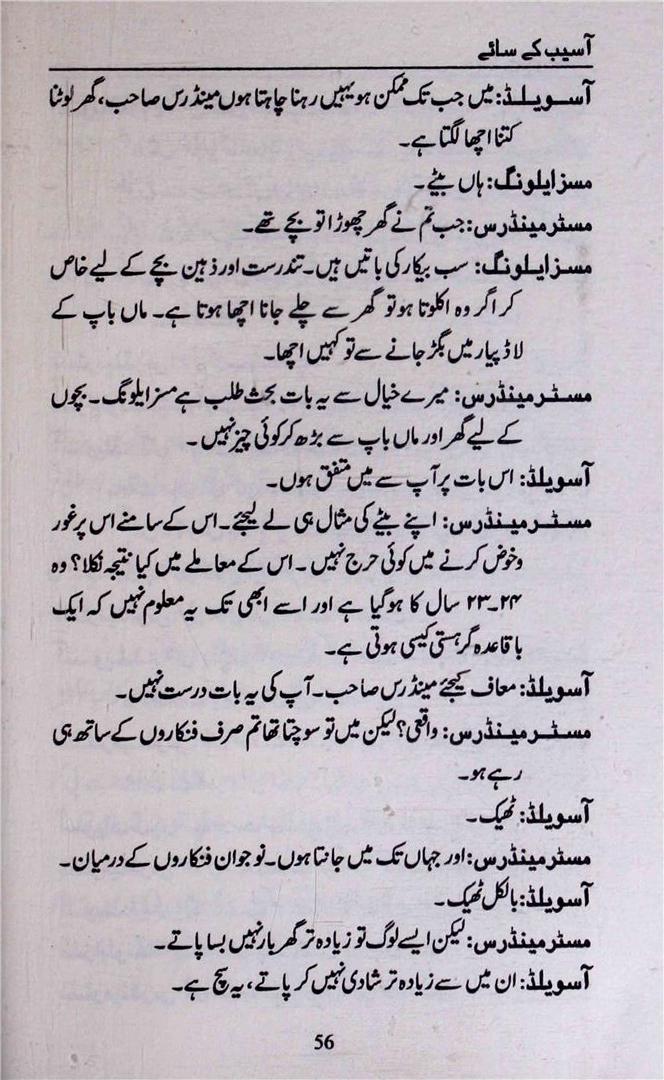 آسیب کے سائے
آسویلڈ: میں جب تک ممکن ہو یہیں رہنا چاہتا ہوں مینڈرس صاحب، گھر لوٹنا
کتنا اچھا لگتا ہے۔
مسز ایلونگ: ہاں بیٹے۔
مسٹر مینڈرس: جب تم نے گھر چھوڑا تو بچے تھے۔
مسز ایلونگ: سب بیکار کی باتیں ہیں۔ تندرست اور ذہین بچے کے لیے خاص
کر اگر وہ اکلوتا ہو تو گھر سے چلے جانا اچھا ہوتا ہے۔ ماں باپ کے
لاڈ پیار میں بگڑ جانے سے تو کہیں اچھا۔
مسٹر مینڈرس: میرے خیال سے یہ بات بحث طلب ہے مسز ایلونگ۔ بچوں
کے لیے گھر اور ماں باپ سے بڑھ کر کوئی چیز نہیں۔
آسویلڈ: اس بات پر آپ سے میں متفق ہوں۔
مسٹر مینڈرس: اپنے بیٹے کی مثال ہی لے لیجئے۔ اس کے سامنے اس پر غور
و خوض کرنے میں کوئی حرج نہیں۔ اس کے معاملے میں کیا نتیجہ نکلا؟ وہ
۲۳۔۲۴ سال کا ہو گیا ہے اور اسے ابھی تک یہ معلوم نہیں کہ ایک
باقاعدہ گرہستی کیسی ہوتی ہے۔
آسویلڈ: معاف کیجئے مینڈرس صاحب۔ آپ کی یہ بات درست نہیں۔
مسٹر مینڈرس: واقعی؟ لیکن میں تو سوچتا تھا تم صرف فنکاروں کے ساتھ ہی
رہے ہو۔
آسویلڈ: ٹھیک۔
مسٹر مینڈرس: اور جہاں تک میں جانتا ہوں۔ نوجوان فنکاروں کے درمیان۔
آسویلڈ: بالکل ٹھیک۔
مسٹر مینڈرس: لیکن ایسے لوگ تو زیادہ تر گھر بار نہیں بسا پاتے۔
آسویلڈ: ان میں سے زیادہ تر شادی نہیں کر پاتے، یہ سچ ہے۔
56